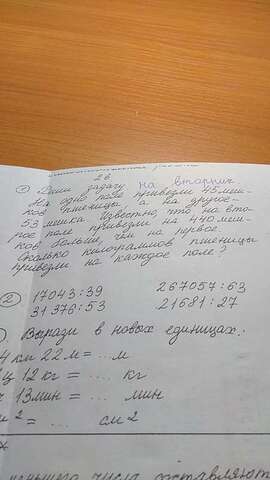 2 б
① Дши задачу на вторник
На одно поле привезли 45 меш-
ков пшеницы, а на другое -
53 мешка. Известно, что на вто-
рое поле привезли на 440 меш-
ков больше, чем на первое.
Сколько килограммов пшеницы
привезли на каждое поле?
② 17043:39 267057:63
31376:53 21681:27
Вырази в новых единицах:
4 км 22 м = ... м
ц 12 кг = ... кг
13 мин = ... мин
м² = ... см²
числа составляют